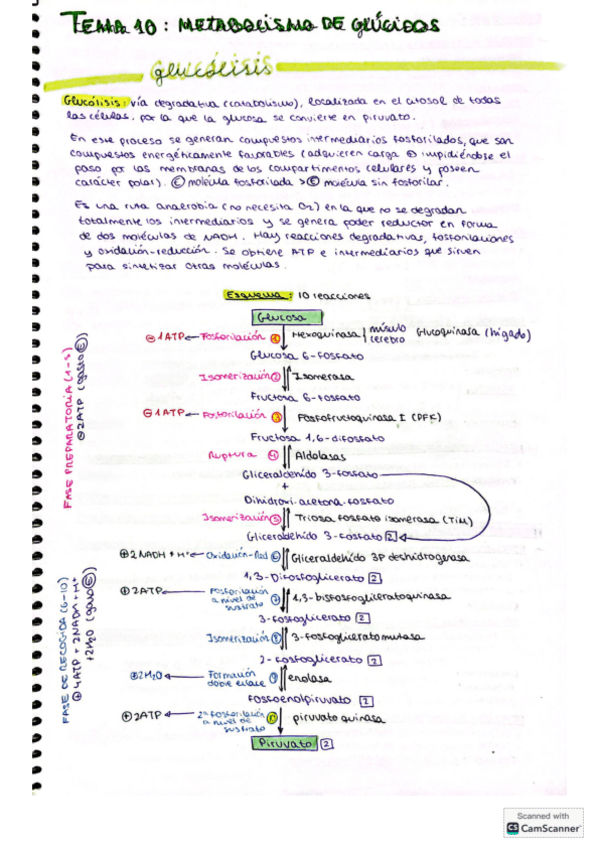 TEMA 10: METABOLISMO DE GLÚCIDOS
glucólisis
Glucólisis: vía degradativa (catabolismo), localizada en el citosol de todas
las células, por la que la glucosa se convierte en piruvato.
En este proceso se generan compuestos intermediarios fosforilados, que son
compuestos energéticamente favorables (adquieren carga ⊖ impidiéndose el
paso por las membranas de los compartimentos celulares y poseen
carácter polar). Ⓔ molécula fosforilada > Ⓔ molécula sin fosforilar.
Es una ruta anaerobia (no necesita O2) en la que no se degradan
totalmente los intermediarios y se genera poder reductor en forma
de dos moléculas de NADH. Hay reacciones degradativas, fosforilaciones
y oxidación-reducción. Se obtiene ATP e intermediarios que sirven
para sintetizar otras moléculas.
Esquema: 10 reacciones
Glucosa
⊖ 1ATP ← Fosforilación ① ↓ Hexoquinasa | músculo cerebro Glucoquinasa (hígado)
Glucosa 6-fosfato
Isomerización ② Isomerasa
Fructosa 6-fosfato
⊖ 1ATP ← Fosforilación ③ ↓ Fosfofructoquinasa I (PFK)
Fructosa 1,6-difosfato
Ruptura ④ Aldolasas
Gliceraldehído 3-fosfato
+
Dihidroxi-acetona-fosfato
Isomerización ⑤ Triosa fosfato isomerasa (TIM)
Gliceraldehído 3-fosfato 2
FASE PREPARATORIA (1-5)
⊖ 2ATP (gasto Ⓔ)
⊕ 2 NADH + H+ ← Oxidación-Red ⑥ Gliceraldehído 3P deshidrogenasa
1,3-Difosfoglicerato 2
⊕ 2ATP ← Fosforilación a nivel de sustrato ⑦ 1,3-bisfosfogliceratoquinasa
3-fosfoglicerato 2
Isomerización ⑧ 3-fosfogliceratomutasa
2-fosfoglicerato 2
⊕ 2H2O ← Formación doble enlace ⑨ enolasa
Fosfoenolpiruvato 2
⊕ 2ATP ← 2ª fosforilación a nivel de sustrato ⑩ ↓ piruvato quinasa
Piruvato 2
FASE DE RECOGIDA (6-10)
⊕ 4ATP + 2NADH + H+
+2H2O
Scanned with
CS CamScanner